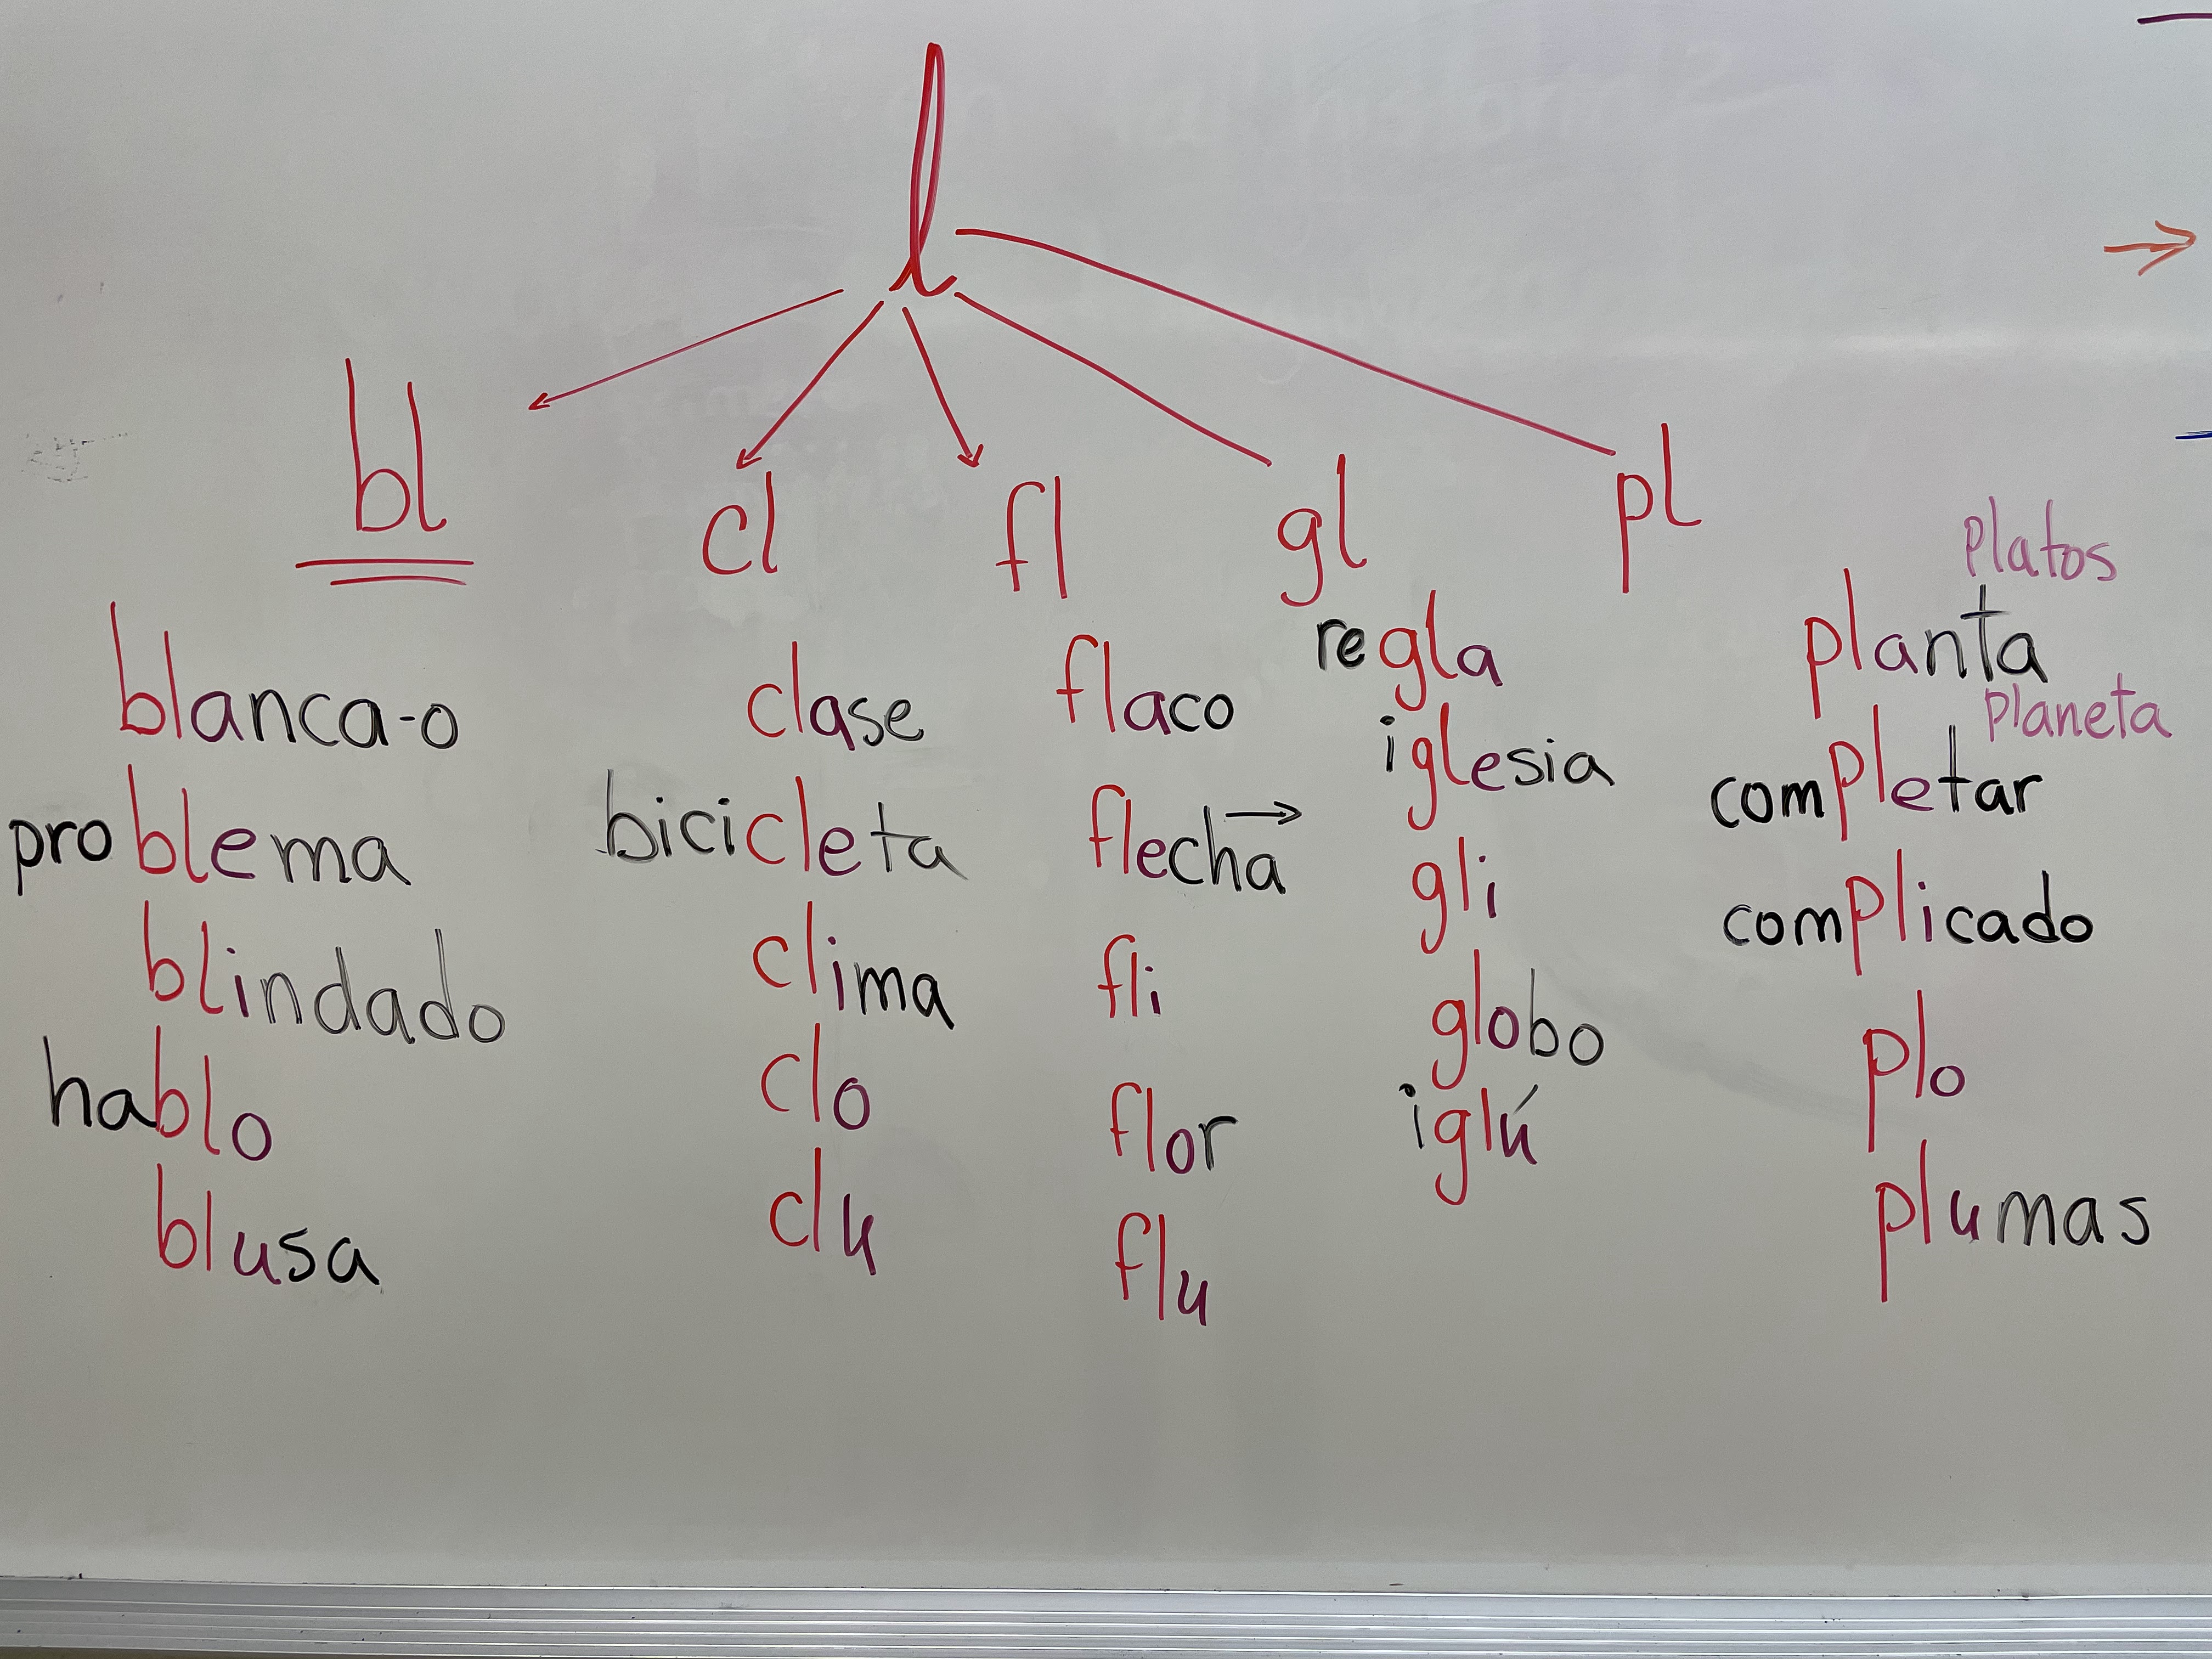 l
bl
cl
fl
gl
pl
blanca-o
problema
blindado
hablo
blusa
clase
bicicleta
clima
clo
clu
flaco
flecha →
fli
flor
flu
regla
iglesia
gli
globo
iglú
Platos
planta
Planeta
completar
complicado
plo
plumas